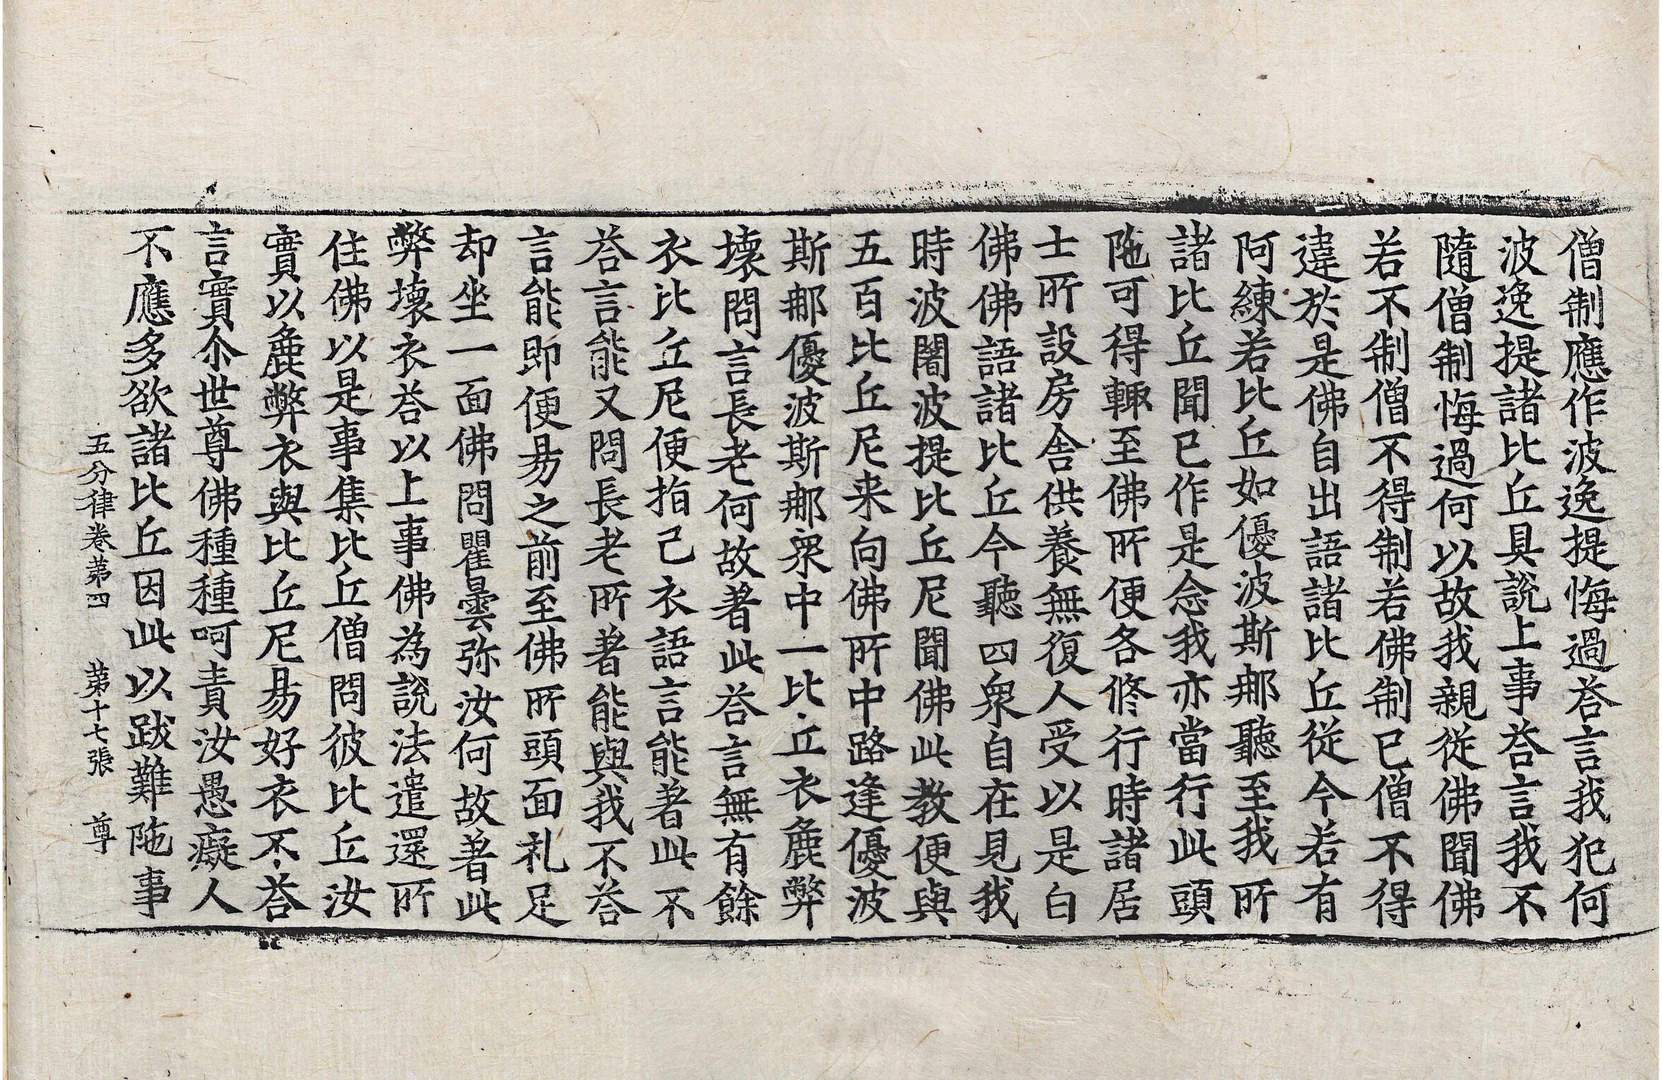 僧制應作波逸提悔過荅言我犯何
波逸提諸比丘具說上事荅言我不
隨僧制悔過何以故我親從佛聞佛
若不制僧不得制若佛制已僧不得
違於是佛自出語諸比丘從今若有
阿練若比丘如優波斯那聽至我所
諸比丘聞已作是念我亦當行此頭
陁可得輙至佛所便各修行時諸居
士所設房舍供養無復人受以是白
佛佛語諸比丘今聽四衆自在見我
時波闍波提比丘尼聞佛此教便與
五百比丘尼来向佛所中路逢優波
斯那優波斯那衆中一比丘衣麁弊
壊問言長老何故著此荅言無有餘
衣比丘尼便指己衣語言能著此不
荅言能又問長老所著能與我不荅
言能即便易之前至佛所頭面礼足
却坐一面佛問瞿曇弥汝何故著此
弊壊衣荅以上事佛為說法遣還所
住佛以是事集比丘僧問彼比丘汝
實以麁弊衣與比丘尼易好衣不荅
言實尒世尊佛種種呵責汝愚癡人
不應多欲諸比丘因此以跋難陁事
五分律卷第四　第十七張　尊